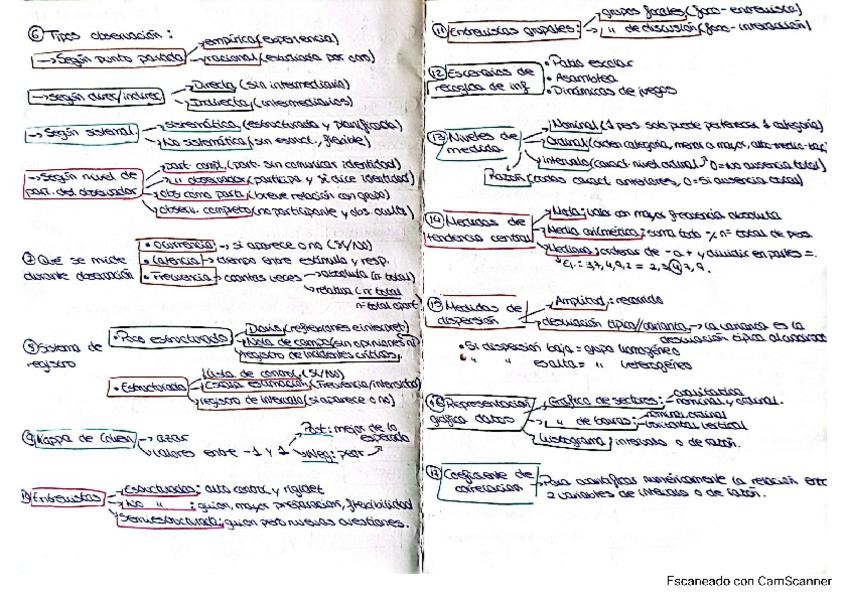 ⑥ Tipos observación:
→ Según punto partida → empírica (experiencia)
→ racional (estudiada por otro)
→ Según direc/indirec → Directa (sin intermediario)
→ Indirecta (intermediarios)
→ Según sistemat. → sistemática (estructurada y planificada)
→ No sistemática (sin estruct., flexible)
→ Según nivel de part. del observador → part. compl. (partic. sin comunicar identidad)
→ " observador (participa y si dice identidad)
→ obs como part. (breve relación con grupo)
→ observ. completo (no participante y obs. oculta)
⑦ Qué se mide durante observación
• Ocurrencia → si aparece o no (Sí/No)
• Latencia → tiempo entre estímulo y resp.
• Frecuencia → cuantas veces → absoluta (nº total)
→ relativa (nº total
n=total
⑧ Sistema de registro
• Poco estructurado → Diario (reflexiones e interpret)
→ Nota de campo (sin opiniones ni
→ registro de incidentes críticos,
• Estructurado → Lista de control (Sí/No)
→ Escala estimación (frecuencia/intensidad
→ registro de intervalo (si aparece o no)
⑨ Kappa de Cohen → azar
→ valores entre -1 y 1 → Posit: mejor de lo esperado
→ Neg: peor
⑩ Entrevistas → Estructurada: alto control y rigidez
→ No " : guion, mayor preparación, flexibilidad
→ Semiestructurada: guion pero nuevas cuestiones.
⑪ Entrevistas grupales: → grupos focales (foco-entrevista)
→ " de discusión (foco-interacción)
⑫ Escenarios de recogida de inf
• Patio escolar
• Asamblea
• Dinámicas de juegos
⑬ Niveles de medida → Nominal (1 pers solo puede pertenecer 1 categoría)
→ Ordinal (orden categoría, menor a mayor, alto-medio-bajo
→ intervalo (caract. nivel ordinal 0=No ausencia total)
→ Razón (todas caract anteriores, 0=Si ausencia total)
⑭ Medidas de tendencia central → Moda: valor con mayor frecuencia absoluta
→ Media aritmética: suma todo ÷ n= total de pers
→ Mediana: ordenas de - a + y dividir en partes =.
⑮ Medidas de dispersión → Amplitud: recorrido
→ desviación típica/varianza → la varianza es la desviación típica al cuadrado
• Si dispersión baja = grupo homogéneo
• " " es alta = " heterogéneo
⑯ Representación gráfica datos → Gráfico de sectores: → cualitativa
→ nominal y ordinal.
→ " de barras: → nominal, ordinal
→ horizontal, vertical
→ Histograma: intervalo o de razón.
⑰ Coeficiente de correlación → Para cuantificar numéricamente la relación entre
2 variables de intervalo o de razón.
Escaneado con CamScanner